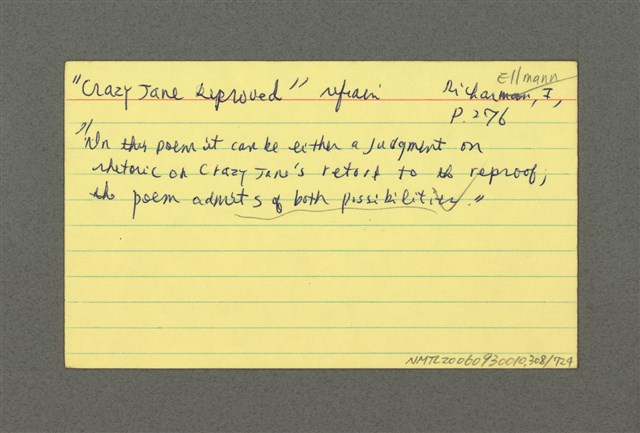 Ellmann
"Crazy Jane Reproved" refrain Richarman, I,
P. 276
"In this poem it can be either a judgment on
rhetoric or Crazy Jane's retort to the reproof;
the poem admits of both possibilities."
NMTL20060930010,308/724